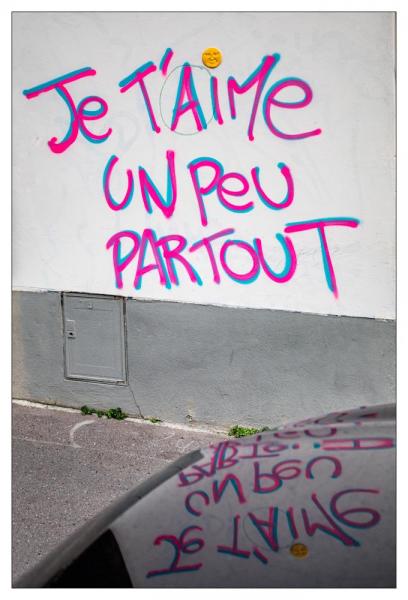 Je T'AiMe
UN PeU
PARTOUT